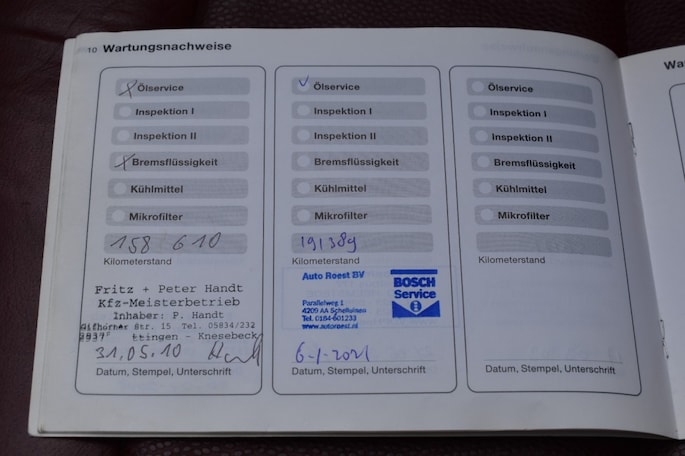 10 Wartungsnachweise
Ölservice
Inspektion I
Inspektion II
Bremsflüssigkeit
Kühlmittel
Mikrofilter
158 610
Kilometerstand
Fritz + Peter Handt
Kfz-Meisterbetrieb
Inhaber: P. Handt
Gifhorner Str. 15 Tel. 05834/232
ttingen - Knesebeck
31.05.10
Datum, Stempel, Unterschrift
Ölservice
Inspektion I
Inspektion II
Bremsflüssigkeit
Kühlmittel
Mikrofilter
191389
Kilometerstand
Auto Roest BV
Parallelweg 1
4209 AA Schelluinen
Tel. 0184-601233
www.autoroest.nl
BOSCH
Service
6-1-2021
Datum, Stempel, Unterschrift
Ölservice
Inspektion I
Inspektion II
Bremsflüssigkeit
Kühlmittel
Mikrofilter
Kilometerstand
Datum, Stempel, Unterschrift
Wa